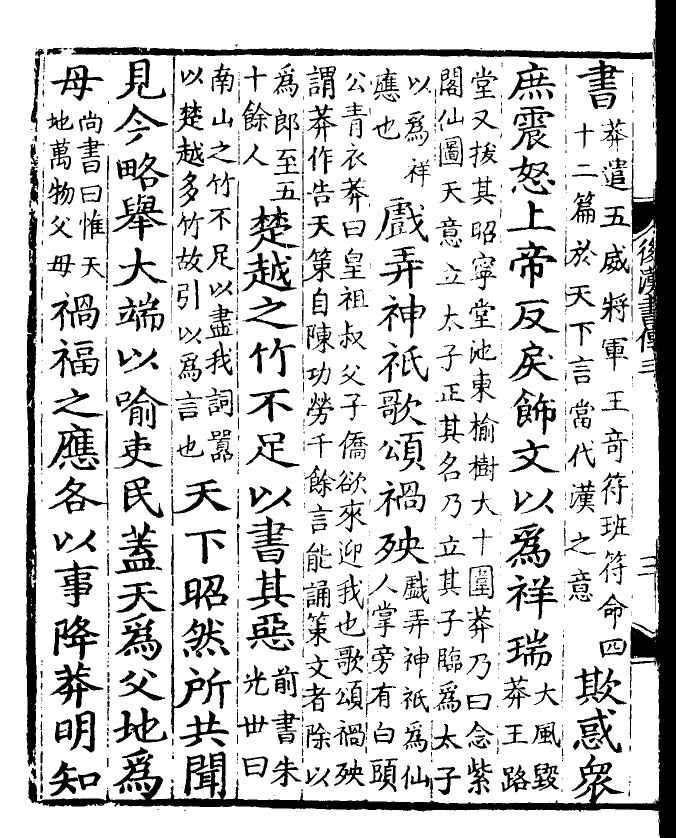 後漢書傳三 三
書莽遣五威將軍王竒符班符命四十二篇於天下言當代漢之意欺惑衆
庶震怒上帝反戾飾文以爲祥瑞大風毀莽王路
堂又拔其昭寧堂池東榆樹大十圍莽乃曰念紫閣仙圖天意立太子正其名乃立其子臨爲太子
以爲祥應也戲弄神祇歌頌禍殃戲弄神祇爲仙人掌旁有白頭
公青衣莽曰皇祖叔父子僑欲來迎我也歌頌禍殃謂莽作告天策自陳功勞千餘言能誦策文者除以
爲郎至五十餘人楚越之竹不足以書其惡前書朱光世曰
南山之竹不足以盡我詞囂以楚越多竹故引以爲言也天下昭然所共聞
見今略舉大端以喻吏民蓋天爲父地爲
母尚書曰惟天地萬物父母禍福之應各以事降莽明知